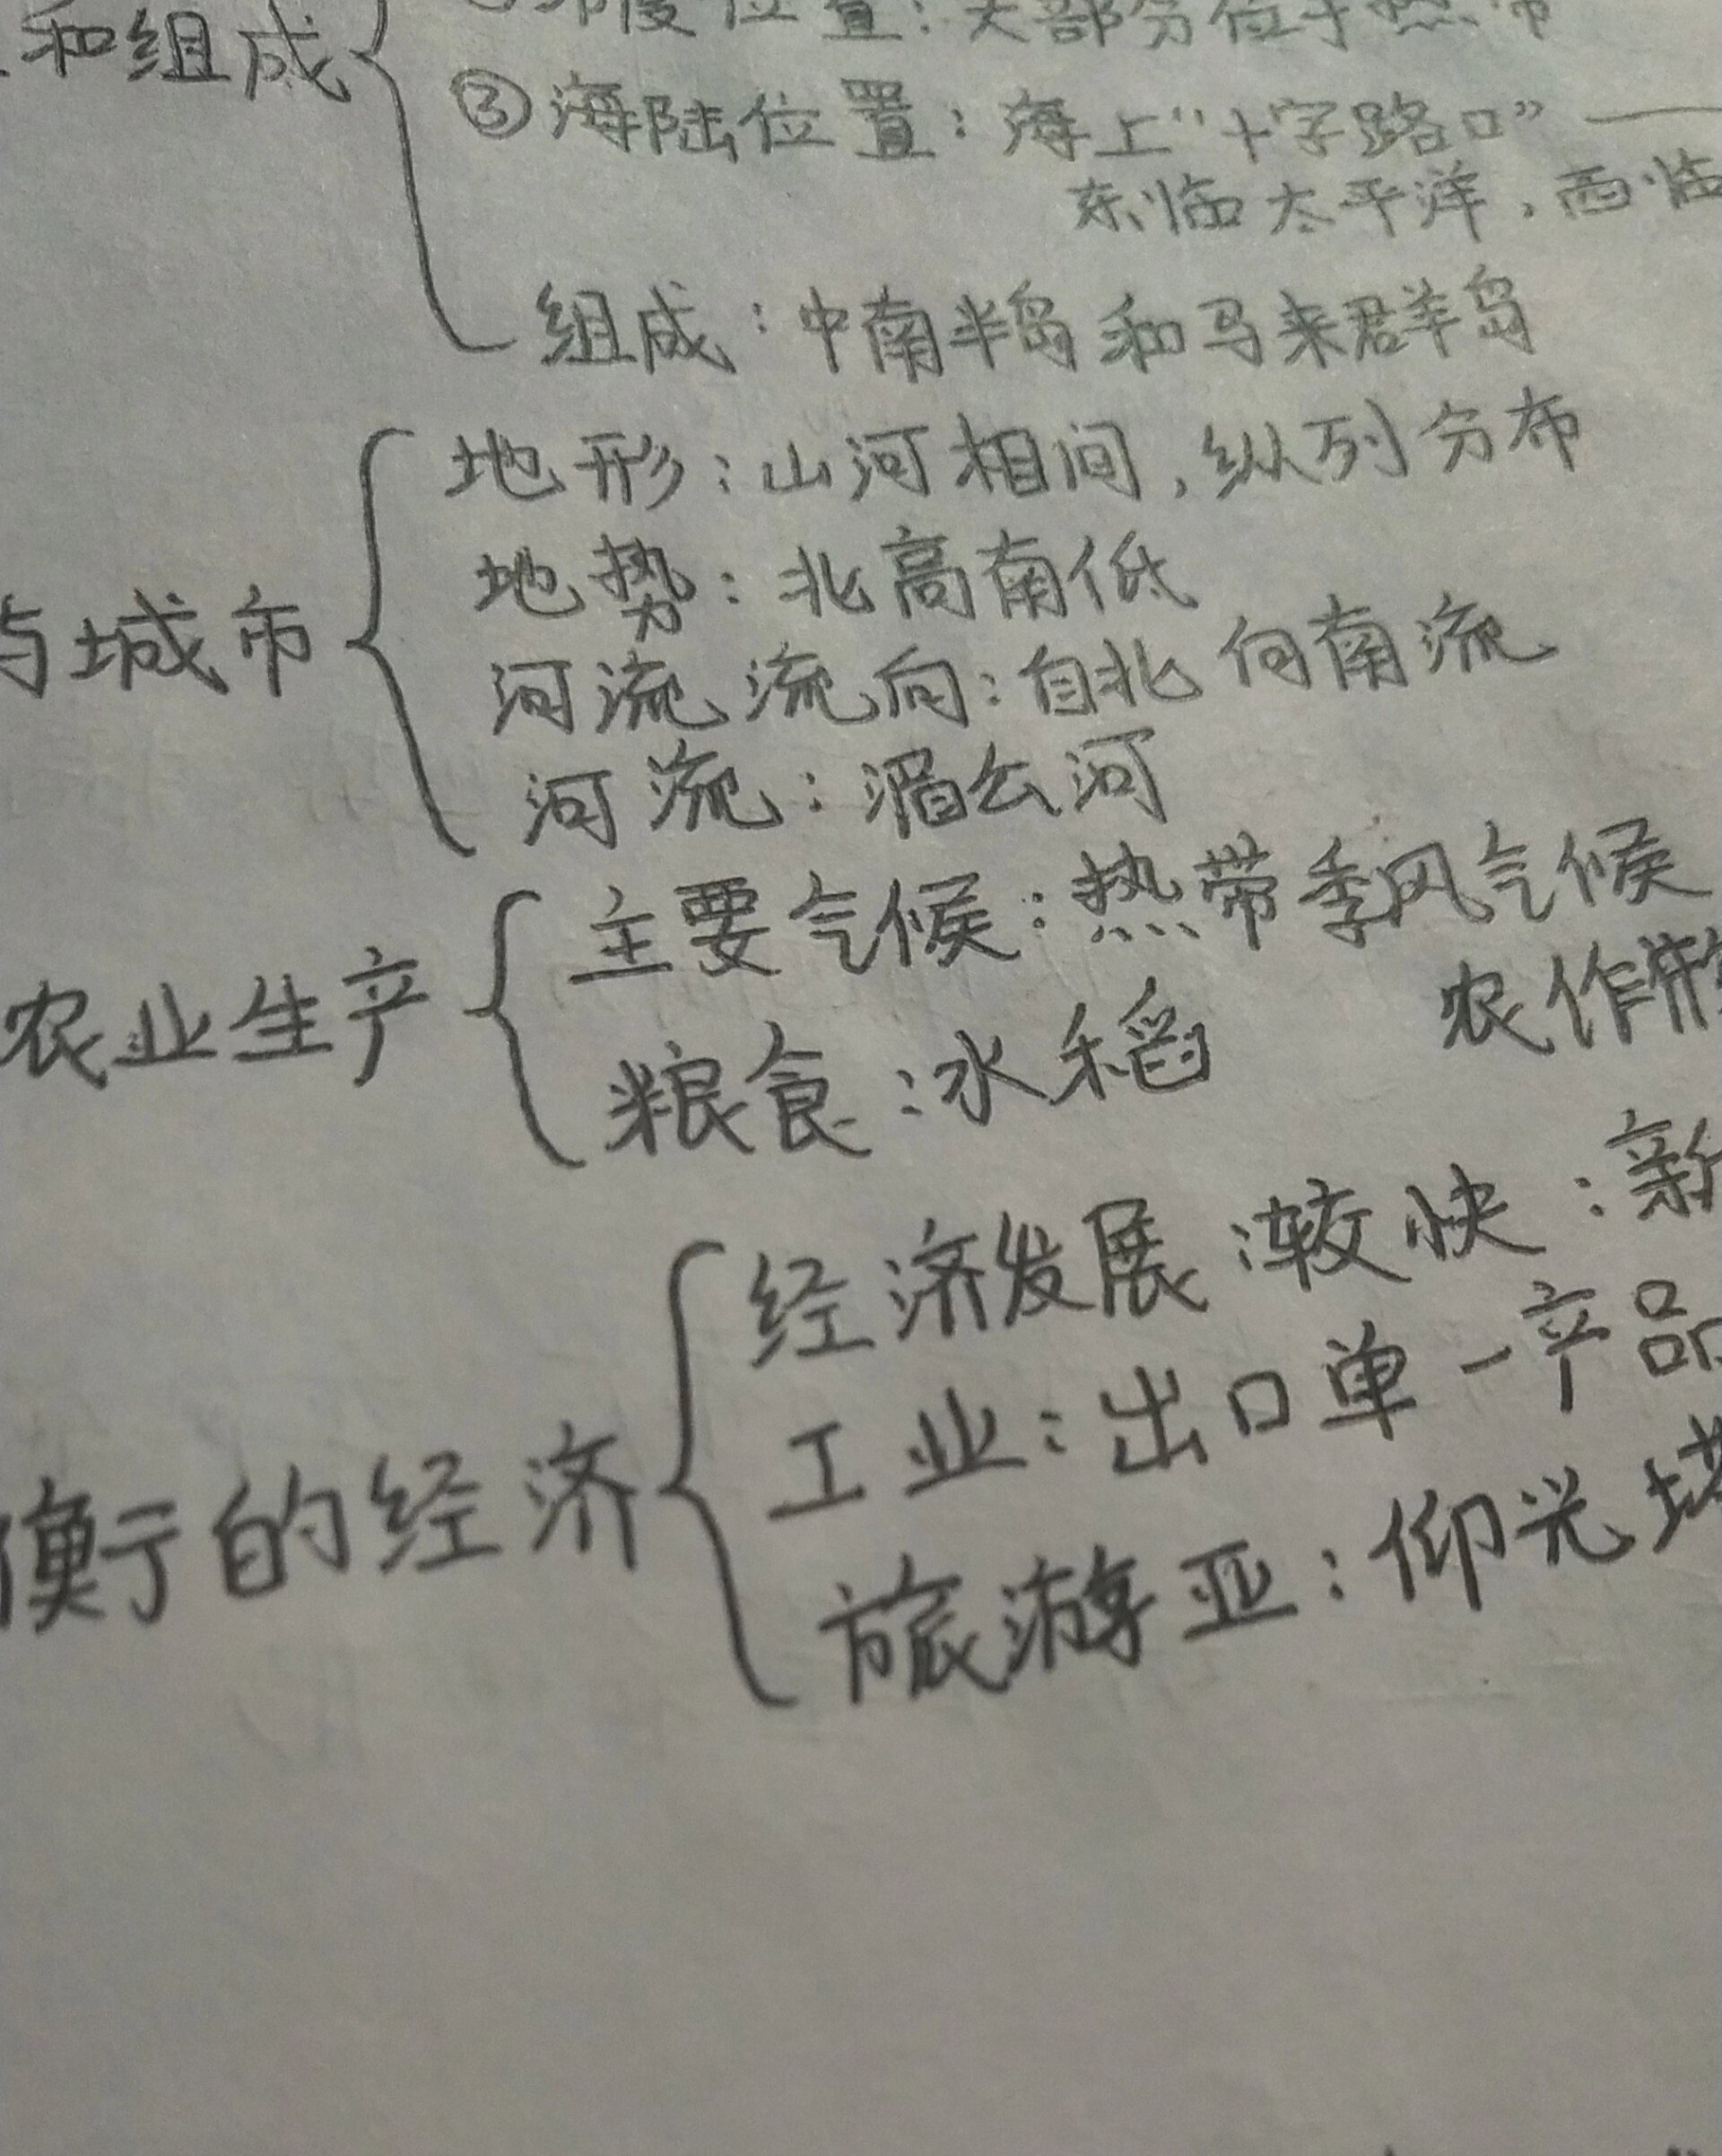 和组成
位置：大部分位于热带
③海陆位置：海上“十字路口”——
东临太平洋，西临
组成：中南半岛和马来群岛
地形：山河相间，纵列分布
地势：北高南低
与城市
河流流向：自北向南流
河流：湄公河
主要气候：热带季风气候
农业生产
粮食：水稻 农作物
经济发展较快：新
工业：出口单一产品
衡的经济
旅游亚：仰光塔